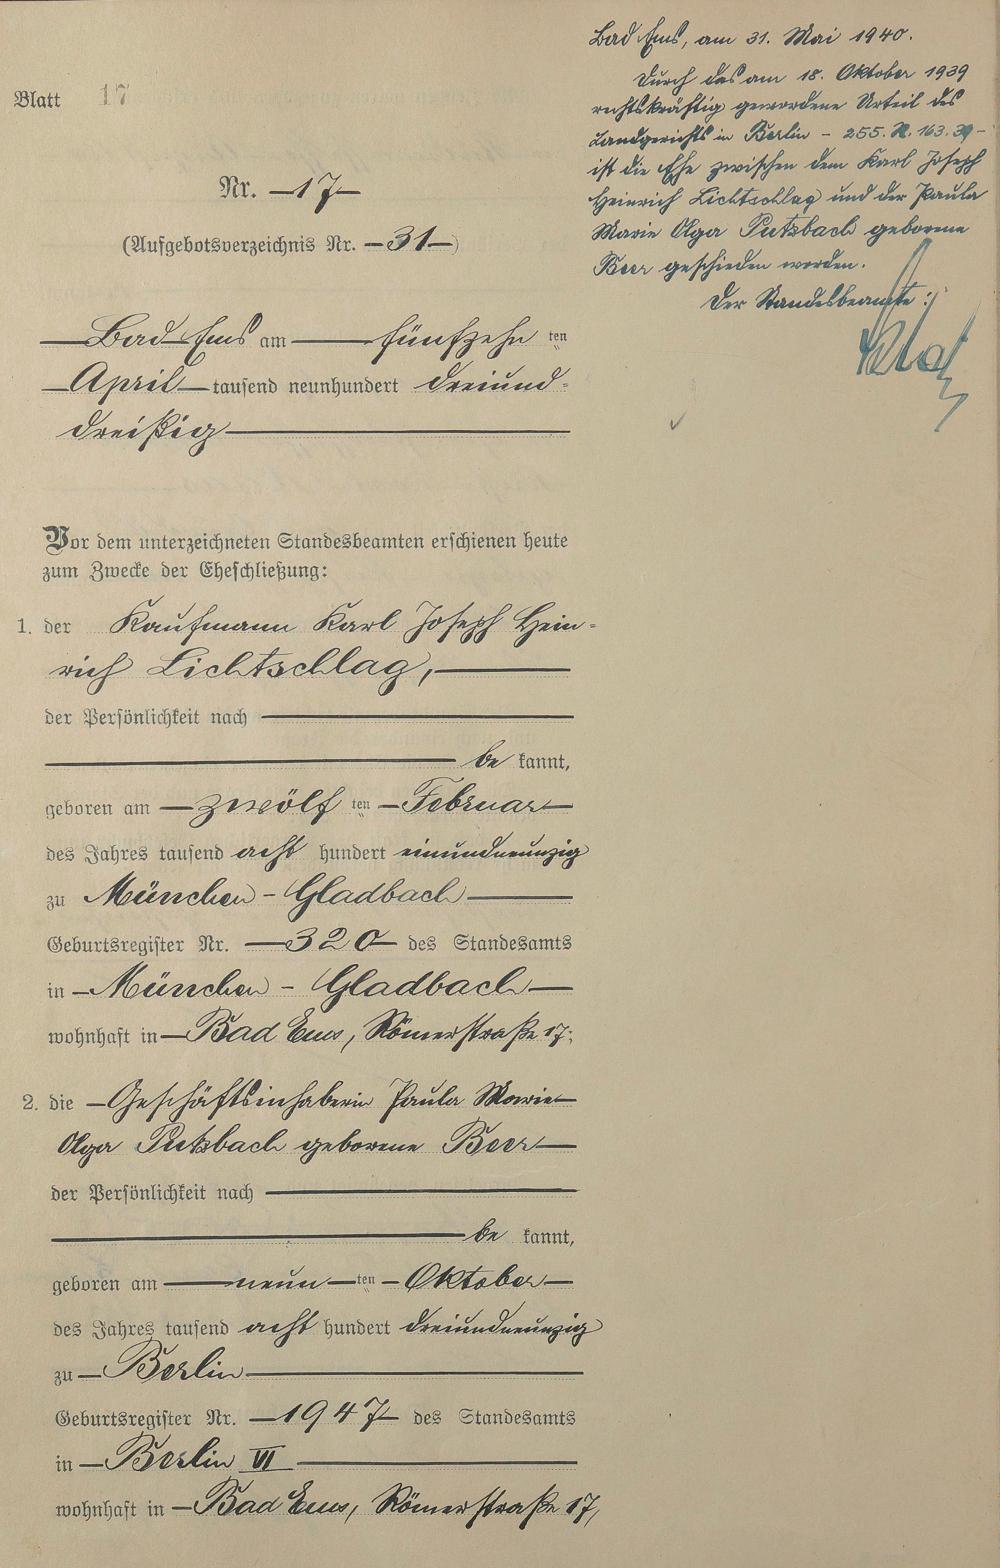 Blatt 17
Nr. 17
(Aufgebotsverzeichnis Nr. 31)
Bad Ems am fünfzehn ten
April tausend neunhundert dreiund-
dreißig
Vor dem unterzeichneten Standesbeamten erschienen heute
zum Zwecke der Eheschließung:
1. der Kaufmann Karl Joseph Hein-
rich Lichtschlag,
der Persönlichkeit nach
be kannt,
geboren am zwölf ten Februar
des Jahres tausend acht hundert einundneunzig
zu München-Gladbach
Geburtsregister Nr. 320 des Standesamts
in München-Gladbach
wohnhaft in Bad Ems, Römerstraße 17;
2. die Geschäftsinhaberin Paula Marie
Olga Putzbach geborene Beer
der Persönlichkeit nach
be kannt,
geboren am neun ten Oktober
des Jahres tausend acht hundert dreiundneunzig
zu Berlin
Geburtsregister Nr. 1947 des Standesamts
in Berlin VI
wohnhaft in Bad Ems, Römerstraße 17,
Bad Ems, am 31. Mai 1940.
Durch das am 18. Oktober 1939
rechtskräftig gewordene Urteil des
Landgerichts in Berlin - 255. R. 163. 39 -
ist die Ehe zwischen dem Karl Joseph
Heinrich Lichtschlag und der Paula
Marie Olga Putzbach geborene
Beer geschieden worden.
Der Standesbeamte: